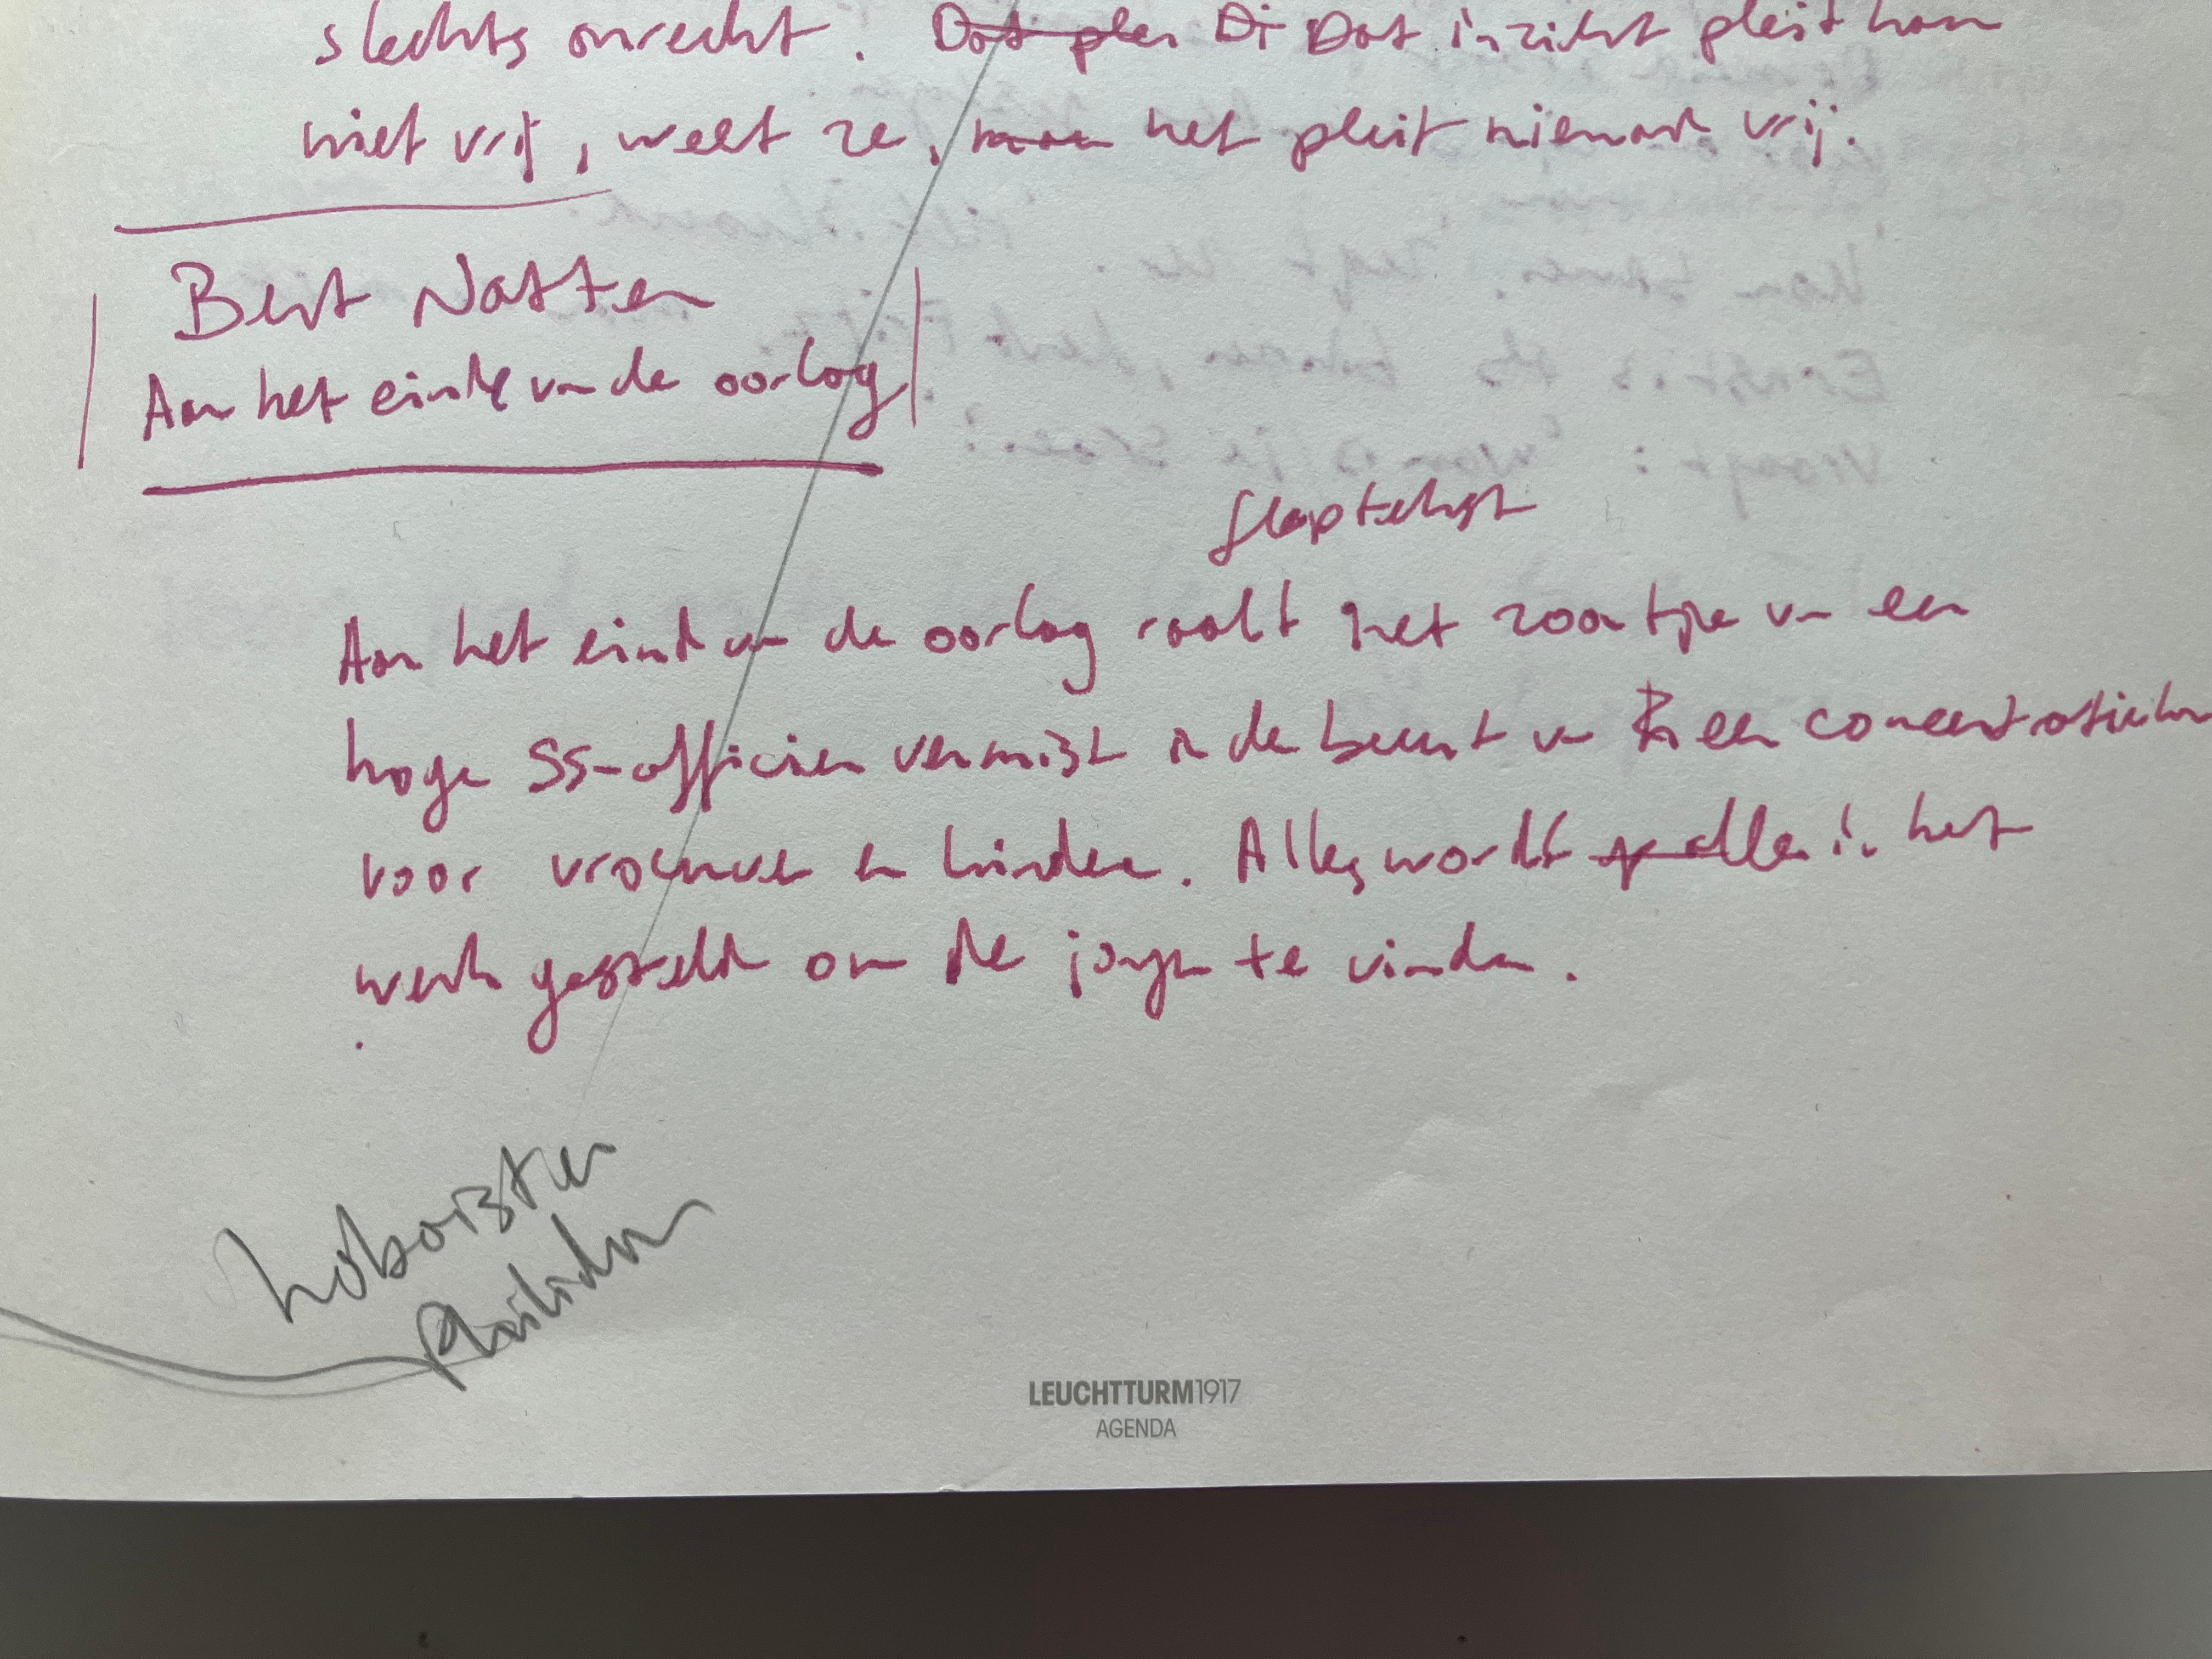 slechts onrecht. Dat plei Di Dat inzicht pleit hem
niet vrij, weet ze, maar het pleit niemand vrij.
Bert Natter
Aan het einde van de oorlog
flaptekst
Aan het eind van de oorlog raakt het zoontje van een
hoge SS-officier vermist in de buurt van een concentratiekamp
voor vrouwen en kinderen. Alles wordt alles in het
werk gesteld om de jongen te vinden.
hoboisten
Philidor
LEUCHTTURM1917
AGENDA